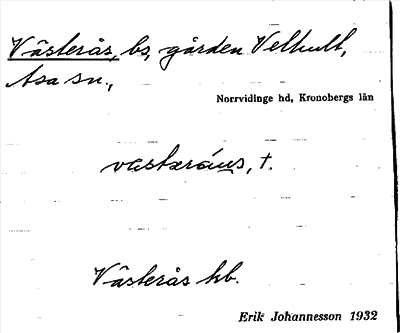 Västerås, bs, gården Velhult,
Asa sn.,
Norrvidinge hd, Kronobergs län
västəråns, t.
Västerås hb.
Erik Johannesson 1932